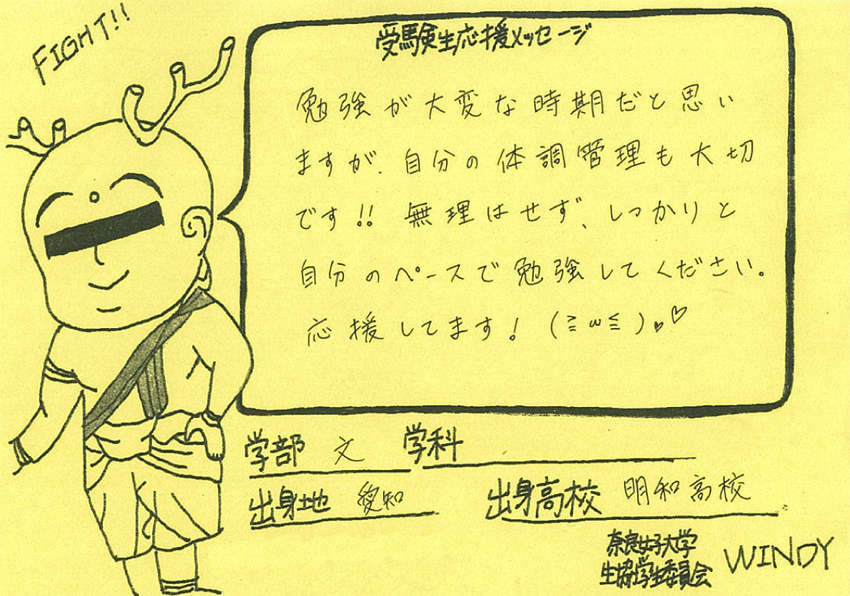 FIGHT!!
受験生応援メッセージ
勉強が大変な時期だと思い
ますが、自分の体調管理も大切
です!! 無理はせず、しっかりと
自分のペースで勉強してください。
応援してます! (≧ω≦)♥♡
学部 文 学科
出身地 愛知 出身高校 明和高校
奈良女子大学
生協学生委員会 WINDY